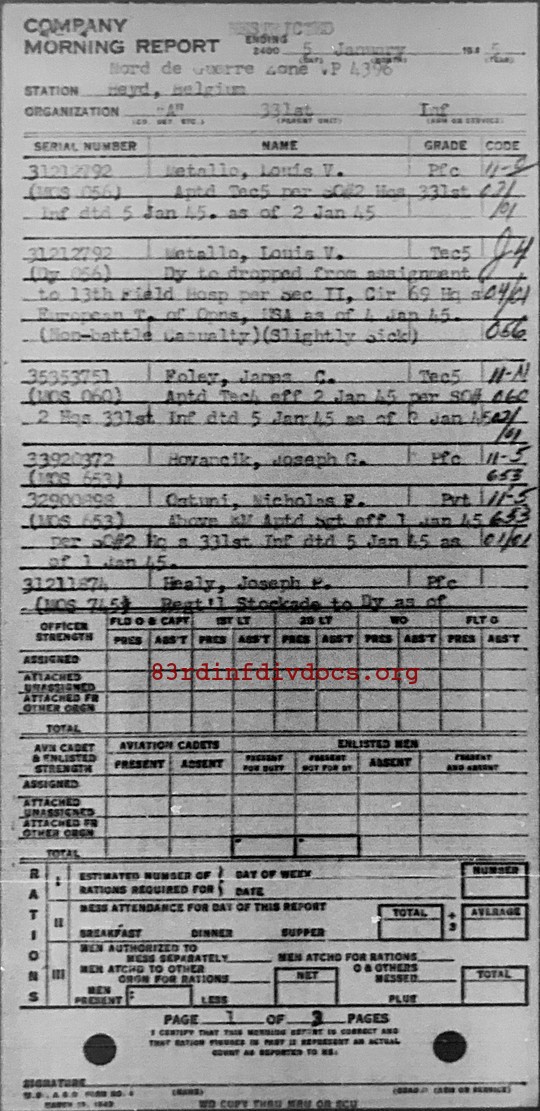 COMPANY
MORNING REPORT
RESTRICTED
ENDING
2400 5 January 194 5
(DAY) (MONTH) (YEAR)
Nord de Guerre Zone VP 4396
STATION Heyd, Belgium
ORGANIZATION "A" 331st Inf
(CO. DET. ETC.) (PARENT UNIT) (ARM OR SERVICE)
SERIAL NUMBER NAME GRADE CODE
31212792 Metallo, Louis V. Pfc
(MOS 056) Aptd Tec5 per SO#2 Hqs 331st
Inf dtd 5 Jan 45. as of 2 Jan 45
31212792 Metallo, Louis V. Tec5
(Dy 056) Dy to dropped from assignment
to 13th Field Hosp per Sec II, Cir 69 Hq s 04/01
European T. of Opns, USA as of 4 Jan 45.
(Non-battle Casualty)(Slightly Sick) 056
35353751 Foley, James C. Tec5 11-N
(MOS 060) Aptd Tec4 eff 2 Jan 45 per SO# 060
2 Hqs 331st Inf dtd 5 Jan 45 as of 2 Jan 45
33920372 Hovancik, Joseph G. Pfc 11-5
(MOS 653) 653
32900898 Ostuni, Nicholas F. Pvt 11-5
(MOS 653) Above EM Aptd Sgt eff 1 Jan 45 653
per SO#2 Hq s 331st Inf dtd 5 Jan 45 as 01/01
of 1 Jan 45.
31211874 Healy, Joseph P. Pfc
(MOS 745) Regt'l Stockade to Dy as of
OFFICER STRENGTH FLD O & CAPT 1ST LT 2D LT WO FLT O
PRES ABS'T PRES ABS'T PRES ABS'T PRES ABS'T PRES ABS'T
ASSIGNED
ATTACHED UNASSIGNED
ATTACHED FR OTHER ORGN
TOTAL
83rdinfdivdocs.org
AVN CADET & ENLISTED STRENGTH AVIATION CADETS ENLISTED MEN
PRESENT ABSENT PRESENT FOR DUTY PRESENT NOT FOR DY ABSENT PRESENT AND ABSENT
ASSIGNED
ATTACHED UNASSIGNED
ATTACHED FR OTHER ORGN
TOTAL
RATIONS
I ESTIMATED NUMBER OF DAY OF WEEK NUMBER
RATIONS REQUIRED FOR DATE
II MESS ATTENDANCE FOR DAY OF THIS REPORT TOTAL ÷ 3 AVERAGE
BREAKFAST DINNER SUPPER
III MEN AUTHORIZED TO MESS SEPARATELY MEN ATCHD FOR RATIONS
MEN ATCHD TO OTHER ORGN FOR RATIONS NET O & OTHERS MESSED TOTAL
MEN PRESENT LESS PLUS
PAGE 1 OF 3 PAGES
I CERTIFY THAT THIS MORNING REPORT IS CORRECT AND
THAT RATION FIGURES IN PART II REPRESENT AN ACTUAL
COUNT AS REPORTED TO ME:
SIGNATURE
W.D., A.G.O. FORM NO. 1 (NAME) (GRADE) (ARM OR SERVICE)
MARCH 1943
WD COPY THRU MRU OR SCU